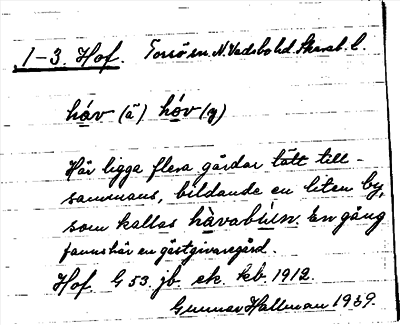 1-3. Hof. Torsö sn. N. Vadsbo hd. Skarab. l.
håv (ä) hóv (y)
Här ligga flera gårdar tätt till-
sammans, bildande en liten by,
som kallas håvabúin. En gång
fanns här en gästgivaregård.
Hof. G 53. jb. ek. kb. 1912.
Gunnar Hallman 1939.